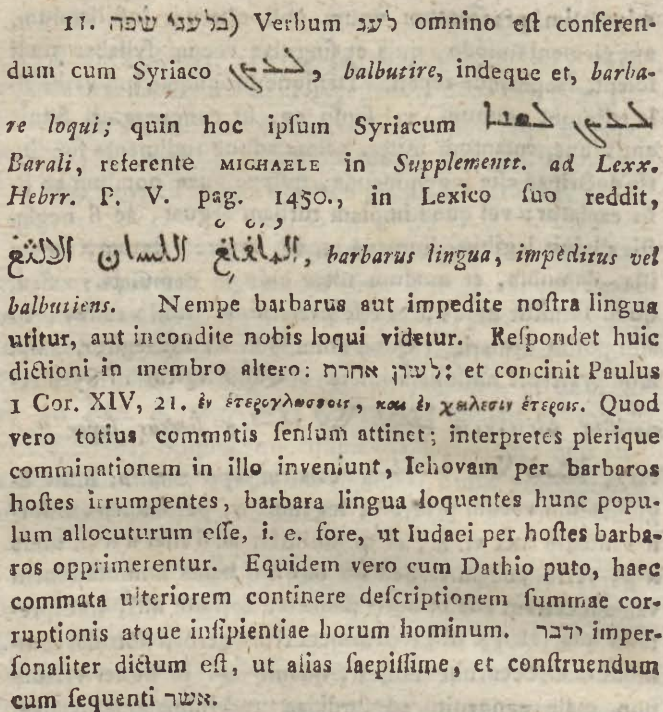 11. בלעגי שפה) Verbum לעג omnino eſt conferen-
dum cum Syriaco ܠܥܓ, balbutire, indeque et, barba-
re loqui; quin hoc ipſum Syriacum ܠܥܓ ܠܫܢܐ
Barali, referente MICHAELE in Supplementt. ad Lexx.
Hebrr. P. V. pag. 1450., in Lexico ſuo reddit,
اللسان الالثغ, barbarus lingua, impeditus vel
balbutiens. Nempe barbarus aut impedite noſtra lingua
utitur, aut incondite nobis loqui videtur. Reſpondet huic
dictioni in membro altero: לשון אחרת; et concinit Paulus
1 Cor. XIV, 21. ἐν ἑτερογλωσσοις, και ἐν χειλεσιν ἑτεροις. Quod
vero totius commatis ſenſum attinet; interpretes plerique
comminationem in illo inveniunt, Iehovam per barbaros
hoſtes irrumpentes, barbara lingua loquentes hunc popu-
lum allocuturum eſſe, i. e. fore, ut Iudaei per hoſtes barba-
ros opprimerentur. Equidem vero cum Dathio puto, haec
commata ulteriorem continere deſcriptionem ſummae cor-
ruptionis atque inſipientiae horum hominum. ידבר imper-
ſonaliter dictum eſt, ut alias ſaepiſſime, et conſtruendum
cum ſequenti אשר.